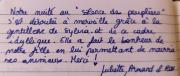 Notre nuit au "silence des peupliers"
s'est déroulée à merveille grâce à la
gentillesse de Sylvia et de ce cadre
idyllique. Elle a fait le bonheur de
notre fille en lui permettant de nourrir
ses animaux. Merci !
Juliette, Arnaud &